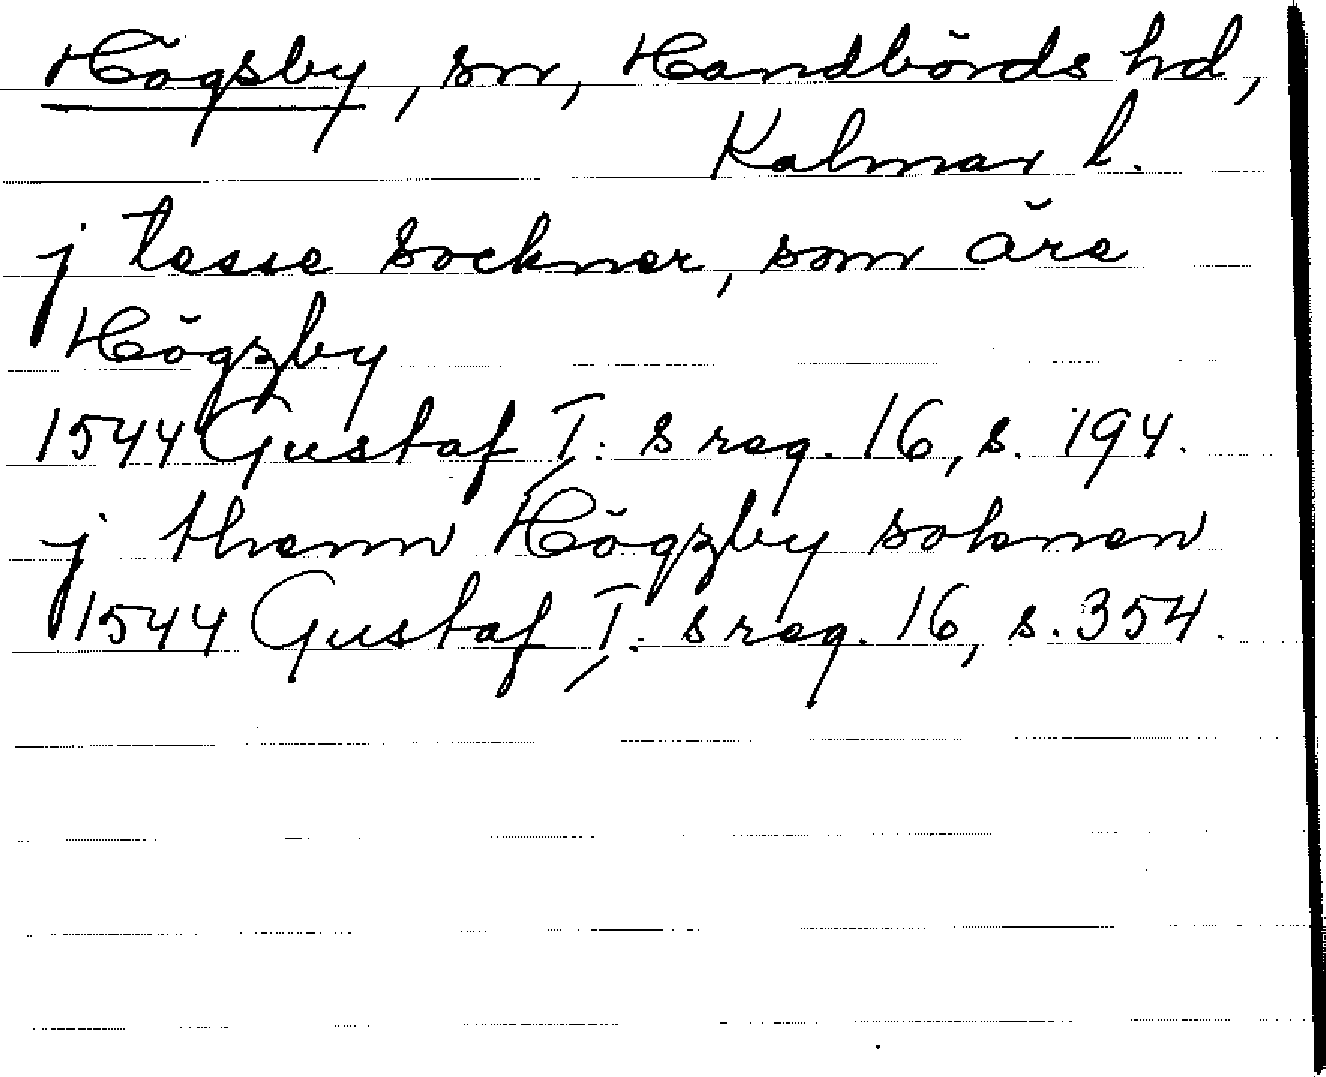 Högsby, sn, Handbörds hd,
Kalmar l.
j tesse sockner, som äre
Högzby
1544 Gustaf I:s reg. 16, s. 194.
j thenn Högzby soknen
1544 Gustaf I:s reg. 16, s. 354.